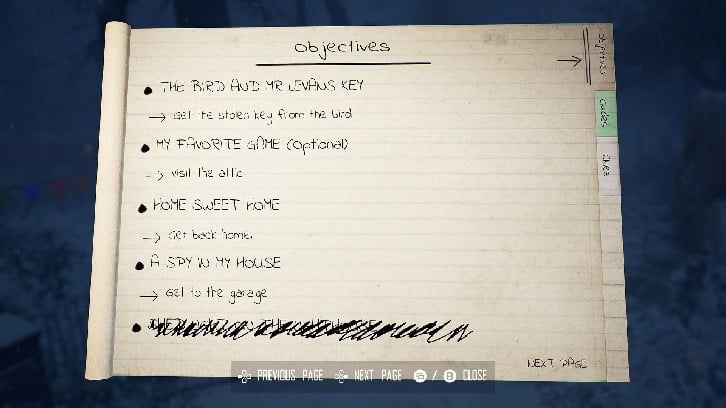 Objectives
THE BIRD AND MR EVANS KEY
Get the stolen key from the bird
MY FAVORITE GAME (Optional)
Visit the attic
HOME SWEET HOME
Get back home.
A SPY IN MY HOUSE
Get to the garage
NEXT PAGE
Objectives
Guides
PREVIOUS PAGE NEXT PAGE / B CLOSE